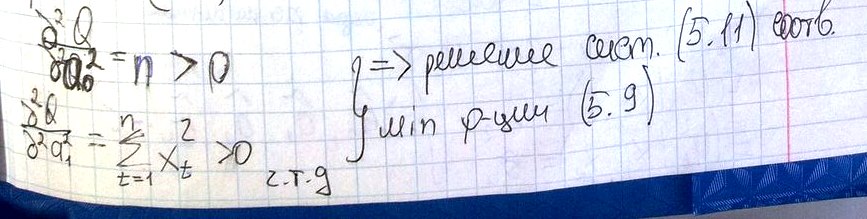 ∂²Q/∂²a₀² = n > 0
∂²Q/∂²a₁² = Σₜ₌₁ⁿ xₜ² > 0
} => решение сист. (5.11) соотв.
min ф-ции (5.9)
ч.т.д